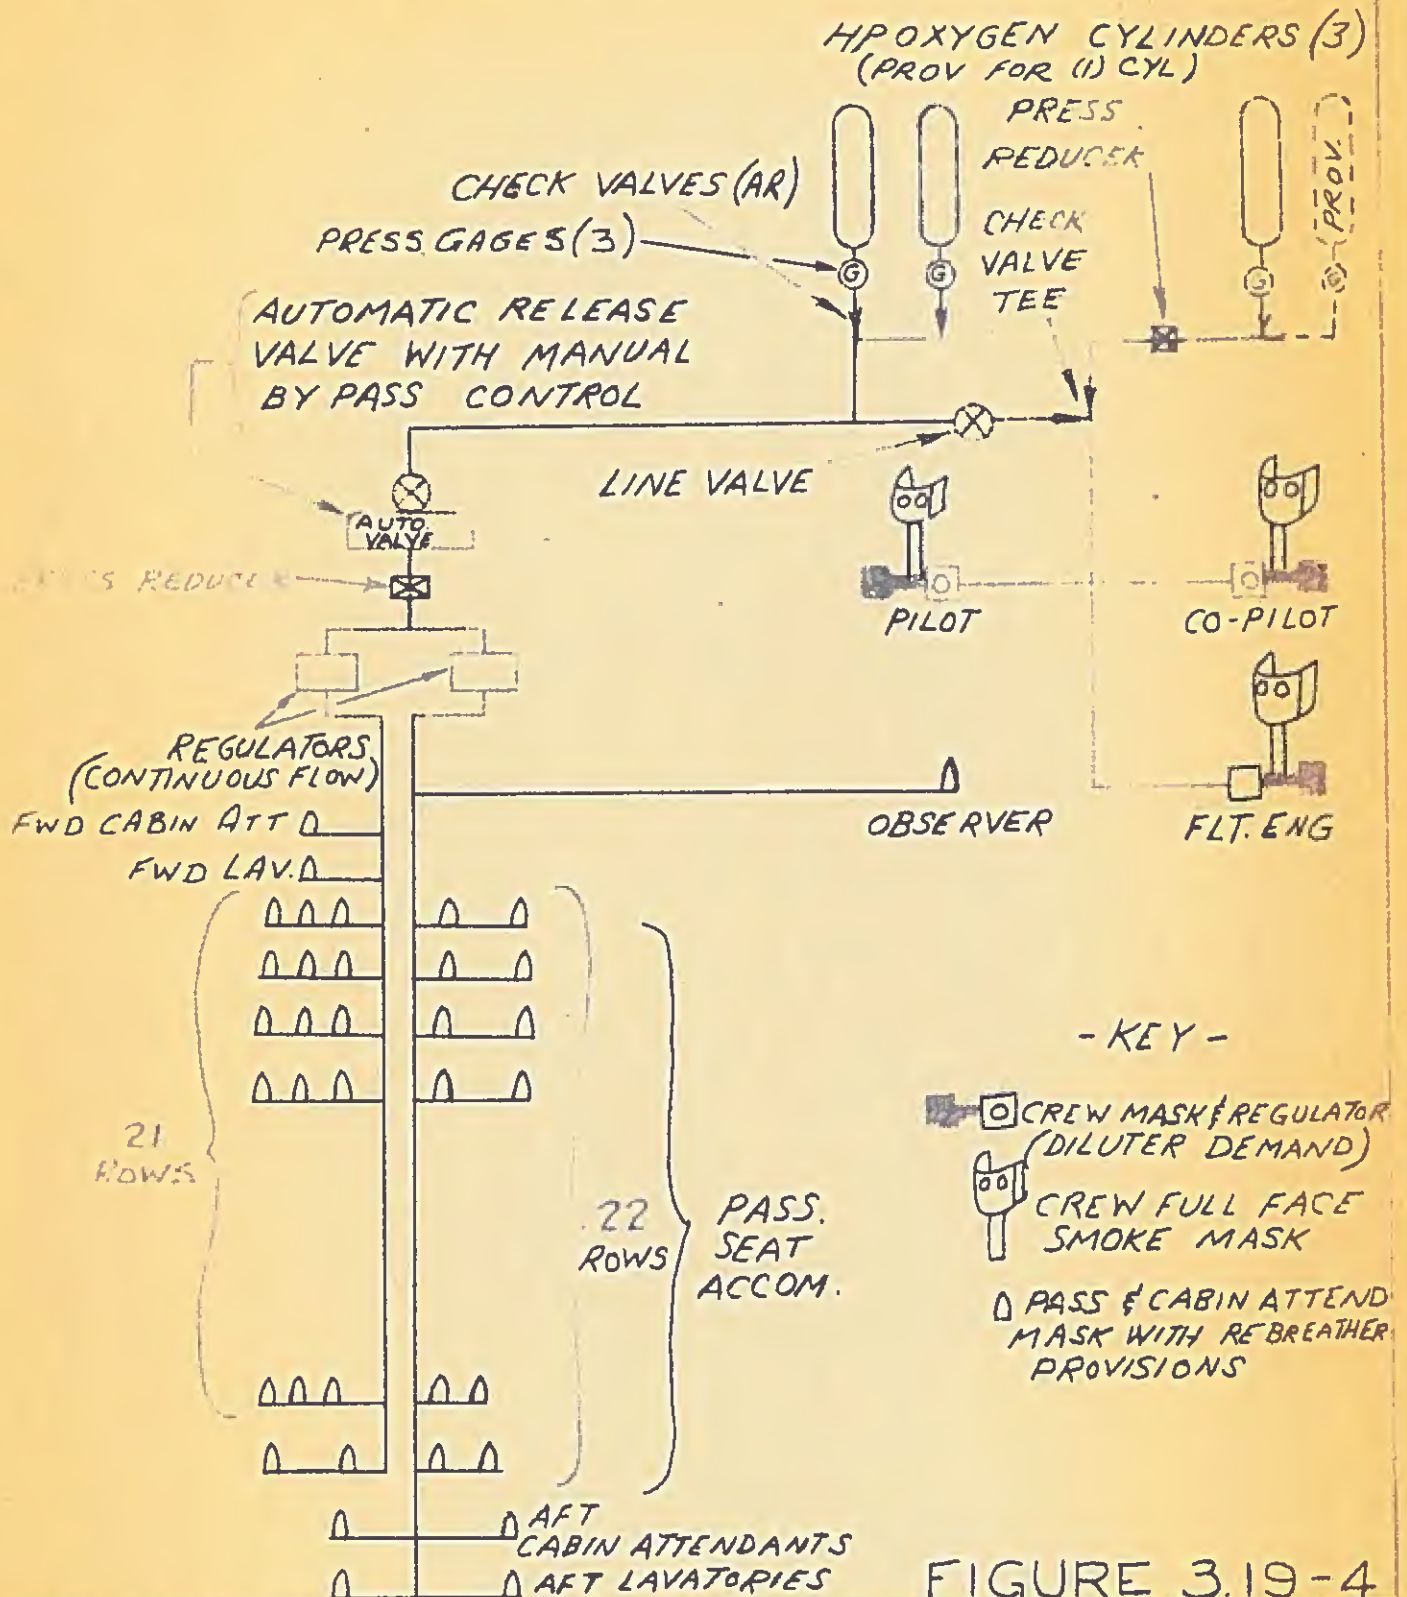 HP OXYGEN CYLINDERS (3)
(PROV FOR (1) CYL)
PRESS
REDUCER
CHECK VALVES (AR)
PRESS. GAGES (3)
CHECK
VALVE
TEE
PROV.
G
G
G
G
AUTOMATIC RELEASE
VALVE WITH MANUAL
BY PASS CONTROL
LINE VALVE
AUTO.
VALVE
PRESS REDUCER
PILOT
CO-PILOT
REGULATORS
(CONTINUOUS FLOW)
FWD CABIN ATT
OBSERVER
FLT. ENG
FWD LAV.
21
ROWS
22
ROWS
PASS.
SEAT
ACCOM.
- KEY -
CREW MASK & REGULATOR
(DILUTER DEMAND)
CREW FULL FACE
SMOKE MASK
PASS & CABIN ATTEND
MASK WITH REBREATHER
PROVISIONS
AFT
CABIN ATTENDANTS
AFT LAVATORIES
FIGURE 3.19-4